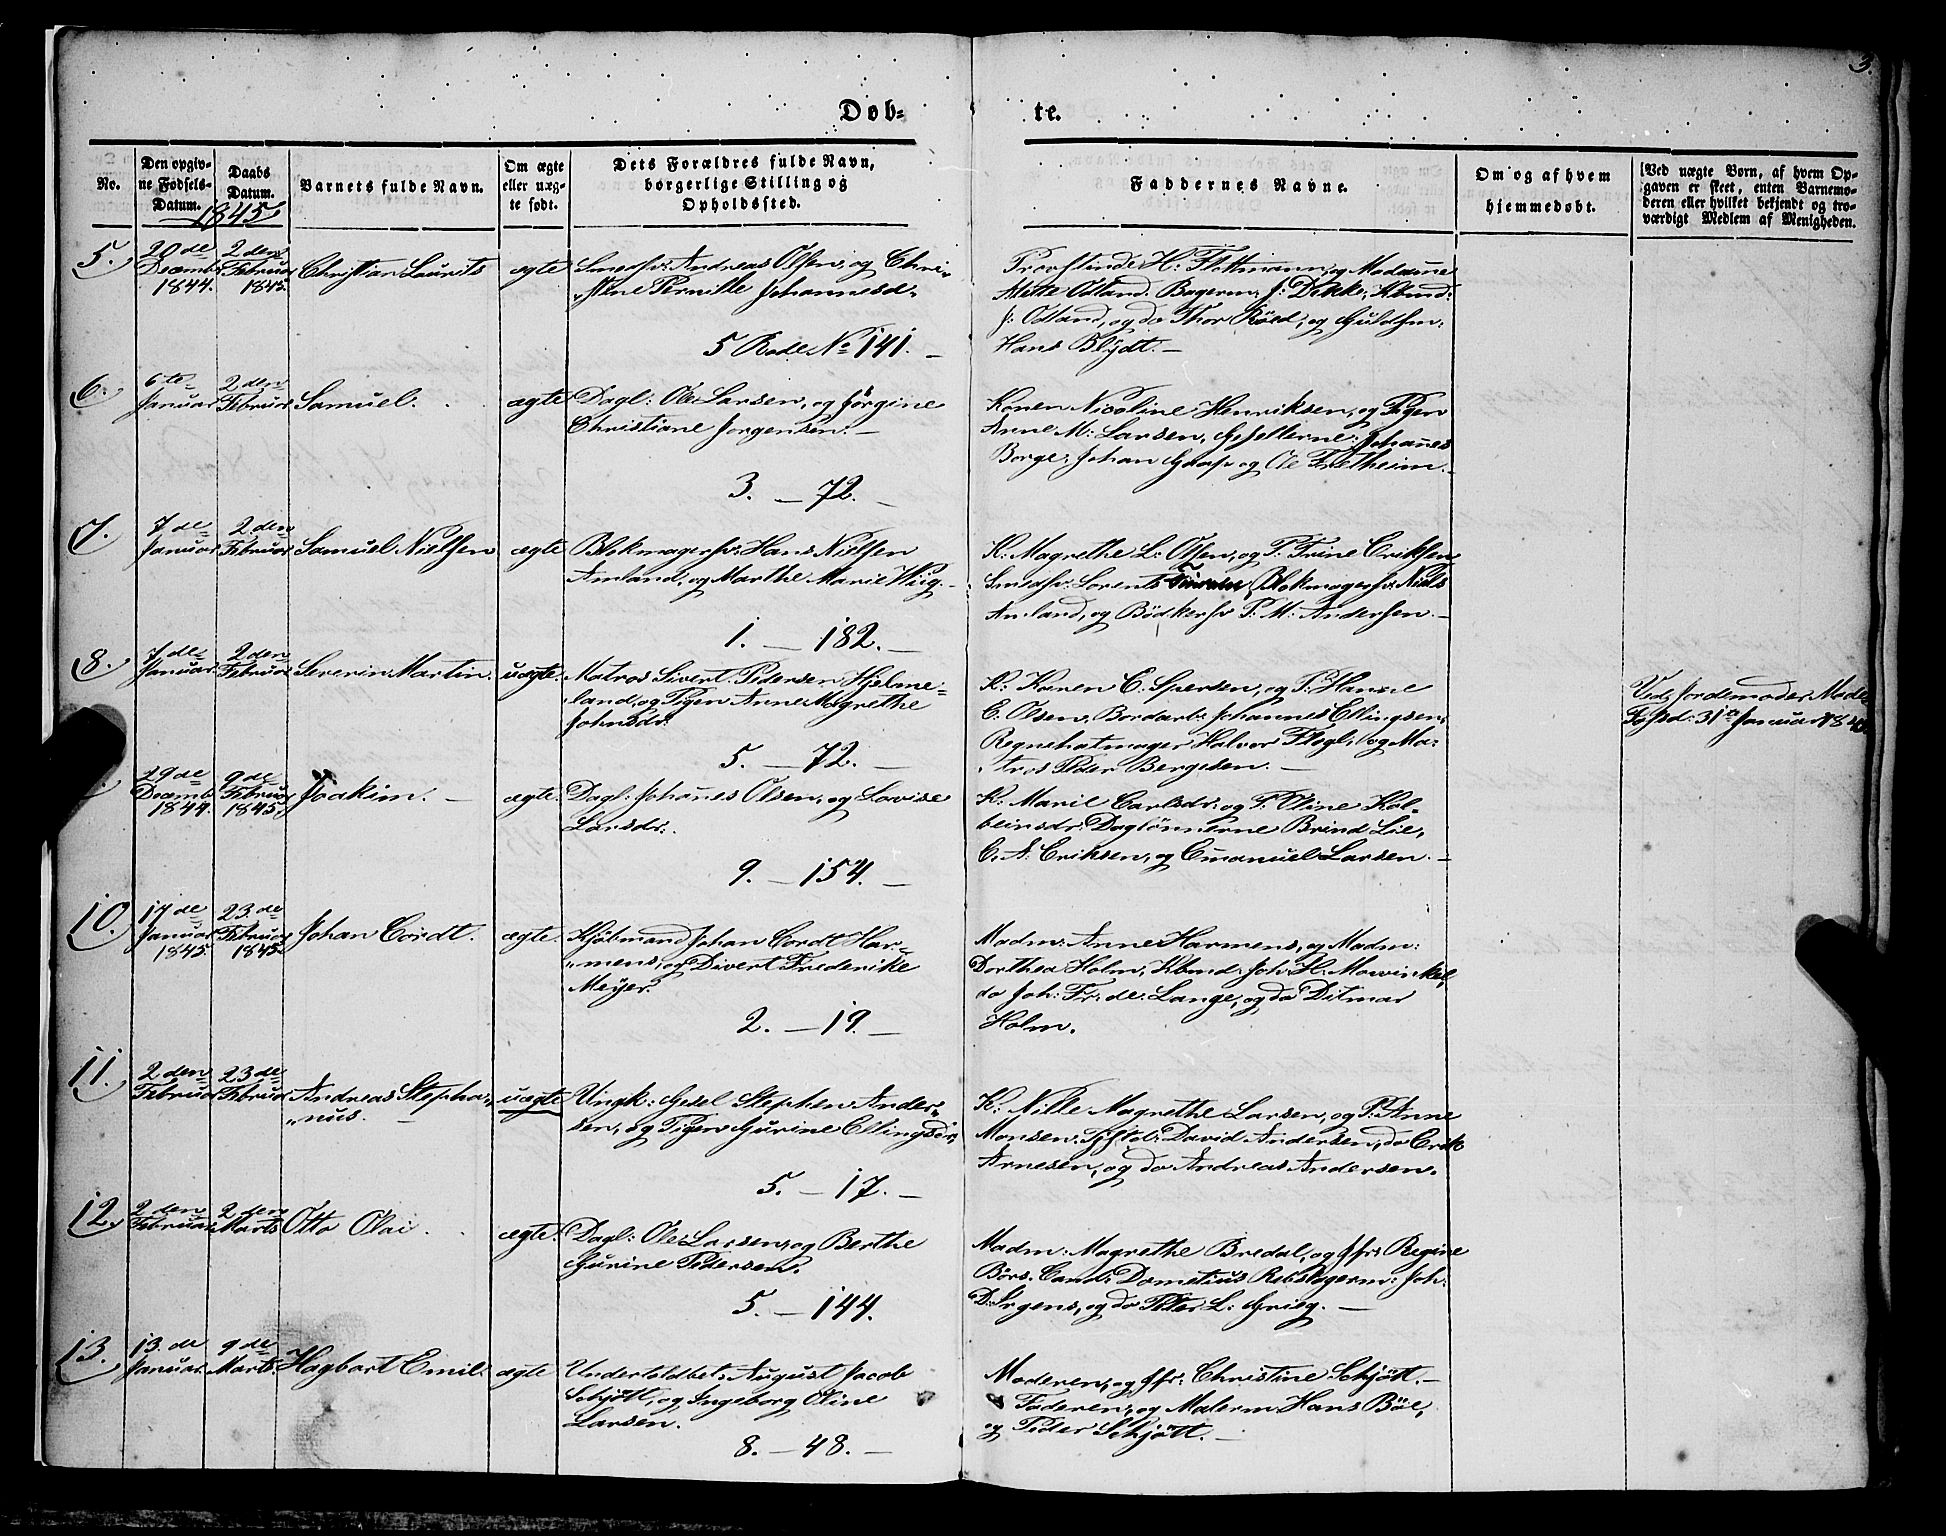 3.
Døb-
te.
No.
Den opgiv-
ne Fødsels-
Datum.
Daabs
Datum.
1845
Barnets fulde Navn.
Om ægte
eller uæg-
te født.
Dets Forældres fulde Navn,
borgerlige Stilling og
Opholdssted.
Faddernes Navne.
Om og af hvem
hjemmedøbt.
Ved uægte Børn, af hvem Op-
gaven er skeet, enten Barnemo-
deren eller hvilket bekjendt og tro-
værdigt Medlem af Menigheden.
5.
20de
Decemb.
1844.
2den
Februar
1845.
Christian Laurits
ægte
Smedsv: Andreas Olsen, og Chri-
stine Pernille Johannesd.
5 Rode No 141. —
H: Flottmann, og Madame
Mette Odland. Bagerm: J: Dekke, Kbmd:
J: Odland, og do Thor Røed, og Guldsm:
Hans Blÿdt. —
6.
6te
Januar
2den
Februar
Samuel.
ægte
Dagl: Ole Larsen, og Jørgine
Christiane Jørgensen. —
3. — 72. —
Konen Nicoline Henriksen, og Pigen
Anne M: Larsen, Gesellerne: Johannes
Borge, Johan og Ole Fretheim. —
7.
7de
Januar
2den
Februar
Samuel Nielsen
ægte
Blokmagersv: Hans Nielsen
Amland, og Marthe Marie Wiig. —
1. — 182. —
K: Magrethe L: Olsen, og P: Trine Eriksen
Smedsv: Lorents Blokmagersv: Niels
Amland, og Bødkersv P: M: Andersen. —
8.
7de
Januar
2den
Februar
Severin Martin.
uægte.
Matros Sivert Pedersen Hjelme-
land, og Pigen Anne Magrethe
Johnsdr:
5. — 72. —
K: Karen C. Spersen, og P: Hanne
C. Olsen, Bordarb: Johannes Ellingsen,
Regnehatmager Halvor Flogl: og Ma-
tros Peder Bergesen. —
Ved Jordemoder Made
31te Januar 1845.
29de
Decemb.
1844.
9de
Februar
1845.
Joakim. —
ægte.
Dagl: Johanes Olsen, og Lovise
Larsdr:
9. — 154. —
K: Marie Carlsdr: og P: Oline Kol-
beinsdr: Daglønnerne Brind Lie,
C. A: Eriksen, og Emanuel Larsen. —
10.
17de
Januar
1845.
23de
Februar
1845.
Johan Cordt.
ægte.
Kjøbmand Johan Cordt Har-
mens, og Divert Frederike
Meÿer.
2. — 19. —
Madm: Anne Harmens, og Madm:
Dorthea Holm, Kbmd: Joh: H. Mowinkel,
do Joh: Fr: de Lange, og do Ditmar
Holm.
11.
2den
Februar
23de
Februar
Andreas Stepha-
nus. —
uægte
Ungk: Gesel Stephen Ander-
sen, og Pigen Gurine Ellingsdr:
5. — 17. —
K: Nille Magrethe Larsen, og P: Anne
Monsen. David Andersen, do Erik
Arnesen, og do Andreas Andersen.
12.
2den
Februar
2den
Marts
Otto Olai.
ægte.
Dagl: Ole Larsen, og Berthe
Gurine Pedersen.
5. — 144.
Madm: Magrethe Bredal, og Jfr: Regine
Børs. Cand: Dometius Rebslagerm: Joh:
D: Irgens, og do Peter L: Grieg. —
13.
13de
Januar
9de
Marts.
Hagbart Emil.
ægte
Undertoldbet: August Jacob
Schjøtt, og Ingeborg Oline
Larsen.
8. — 48. —
Moderen, og Jfr: Christine Schjøtt. —
Faderen, og Malerm: Hans Bøe,
og Peder Schjøtt. —